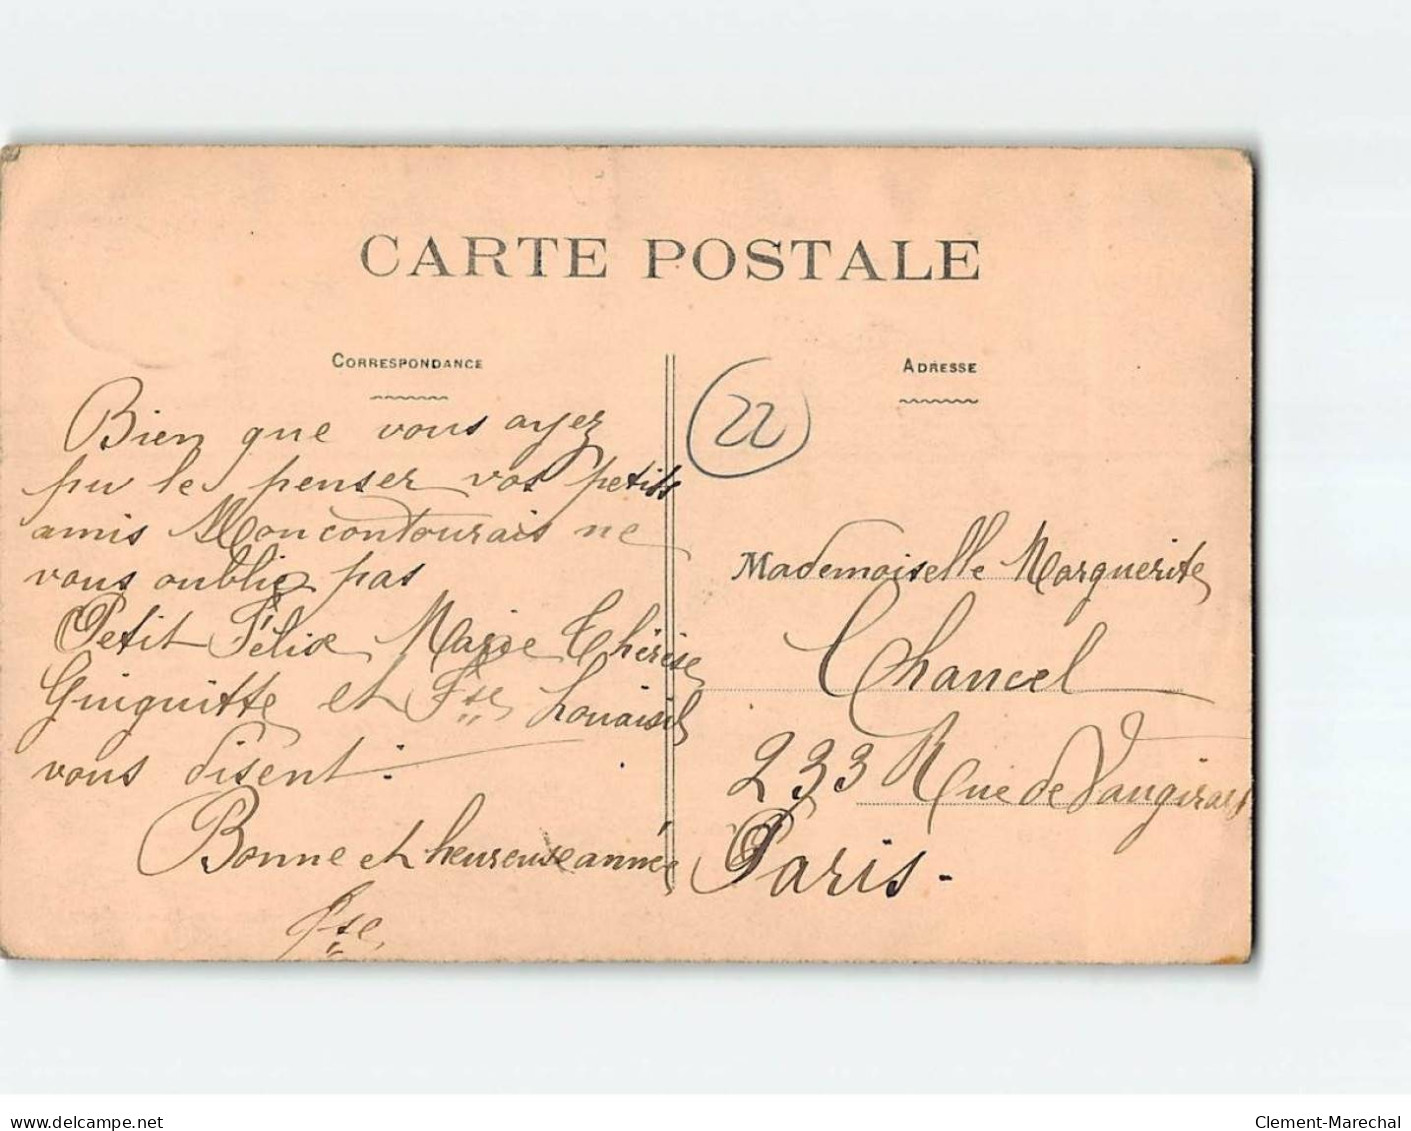 CARTE POSTALE
CORRESPONDANCE
Bien que vous ayez
pu le penser vos petits
amis Moncontourais ne
vous oublie pas
Petit Félix, Marie Thérèse
Guiguitte et Fse
vous disent :
Bonne et heureuse année
Fse
ADRESSE
22
Mademoiselle Marguerite
Chancel
233 Rue de Vaugirard
Paris.
www.delcampe.net
Clement-Marechal